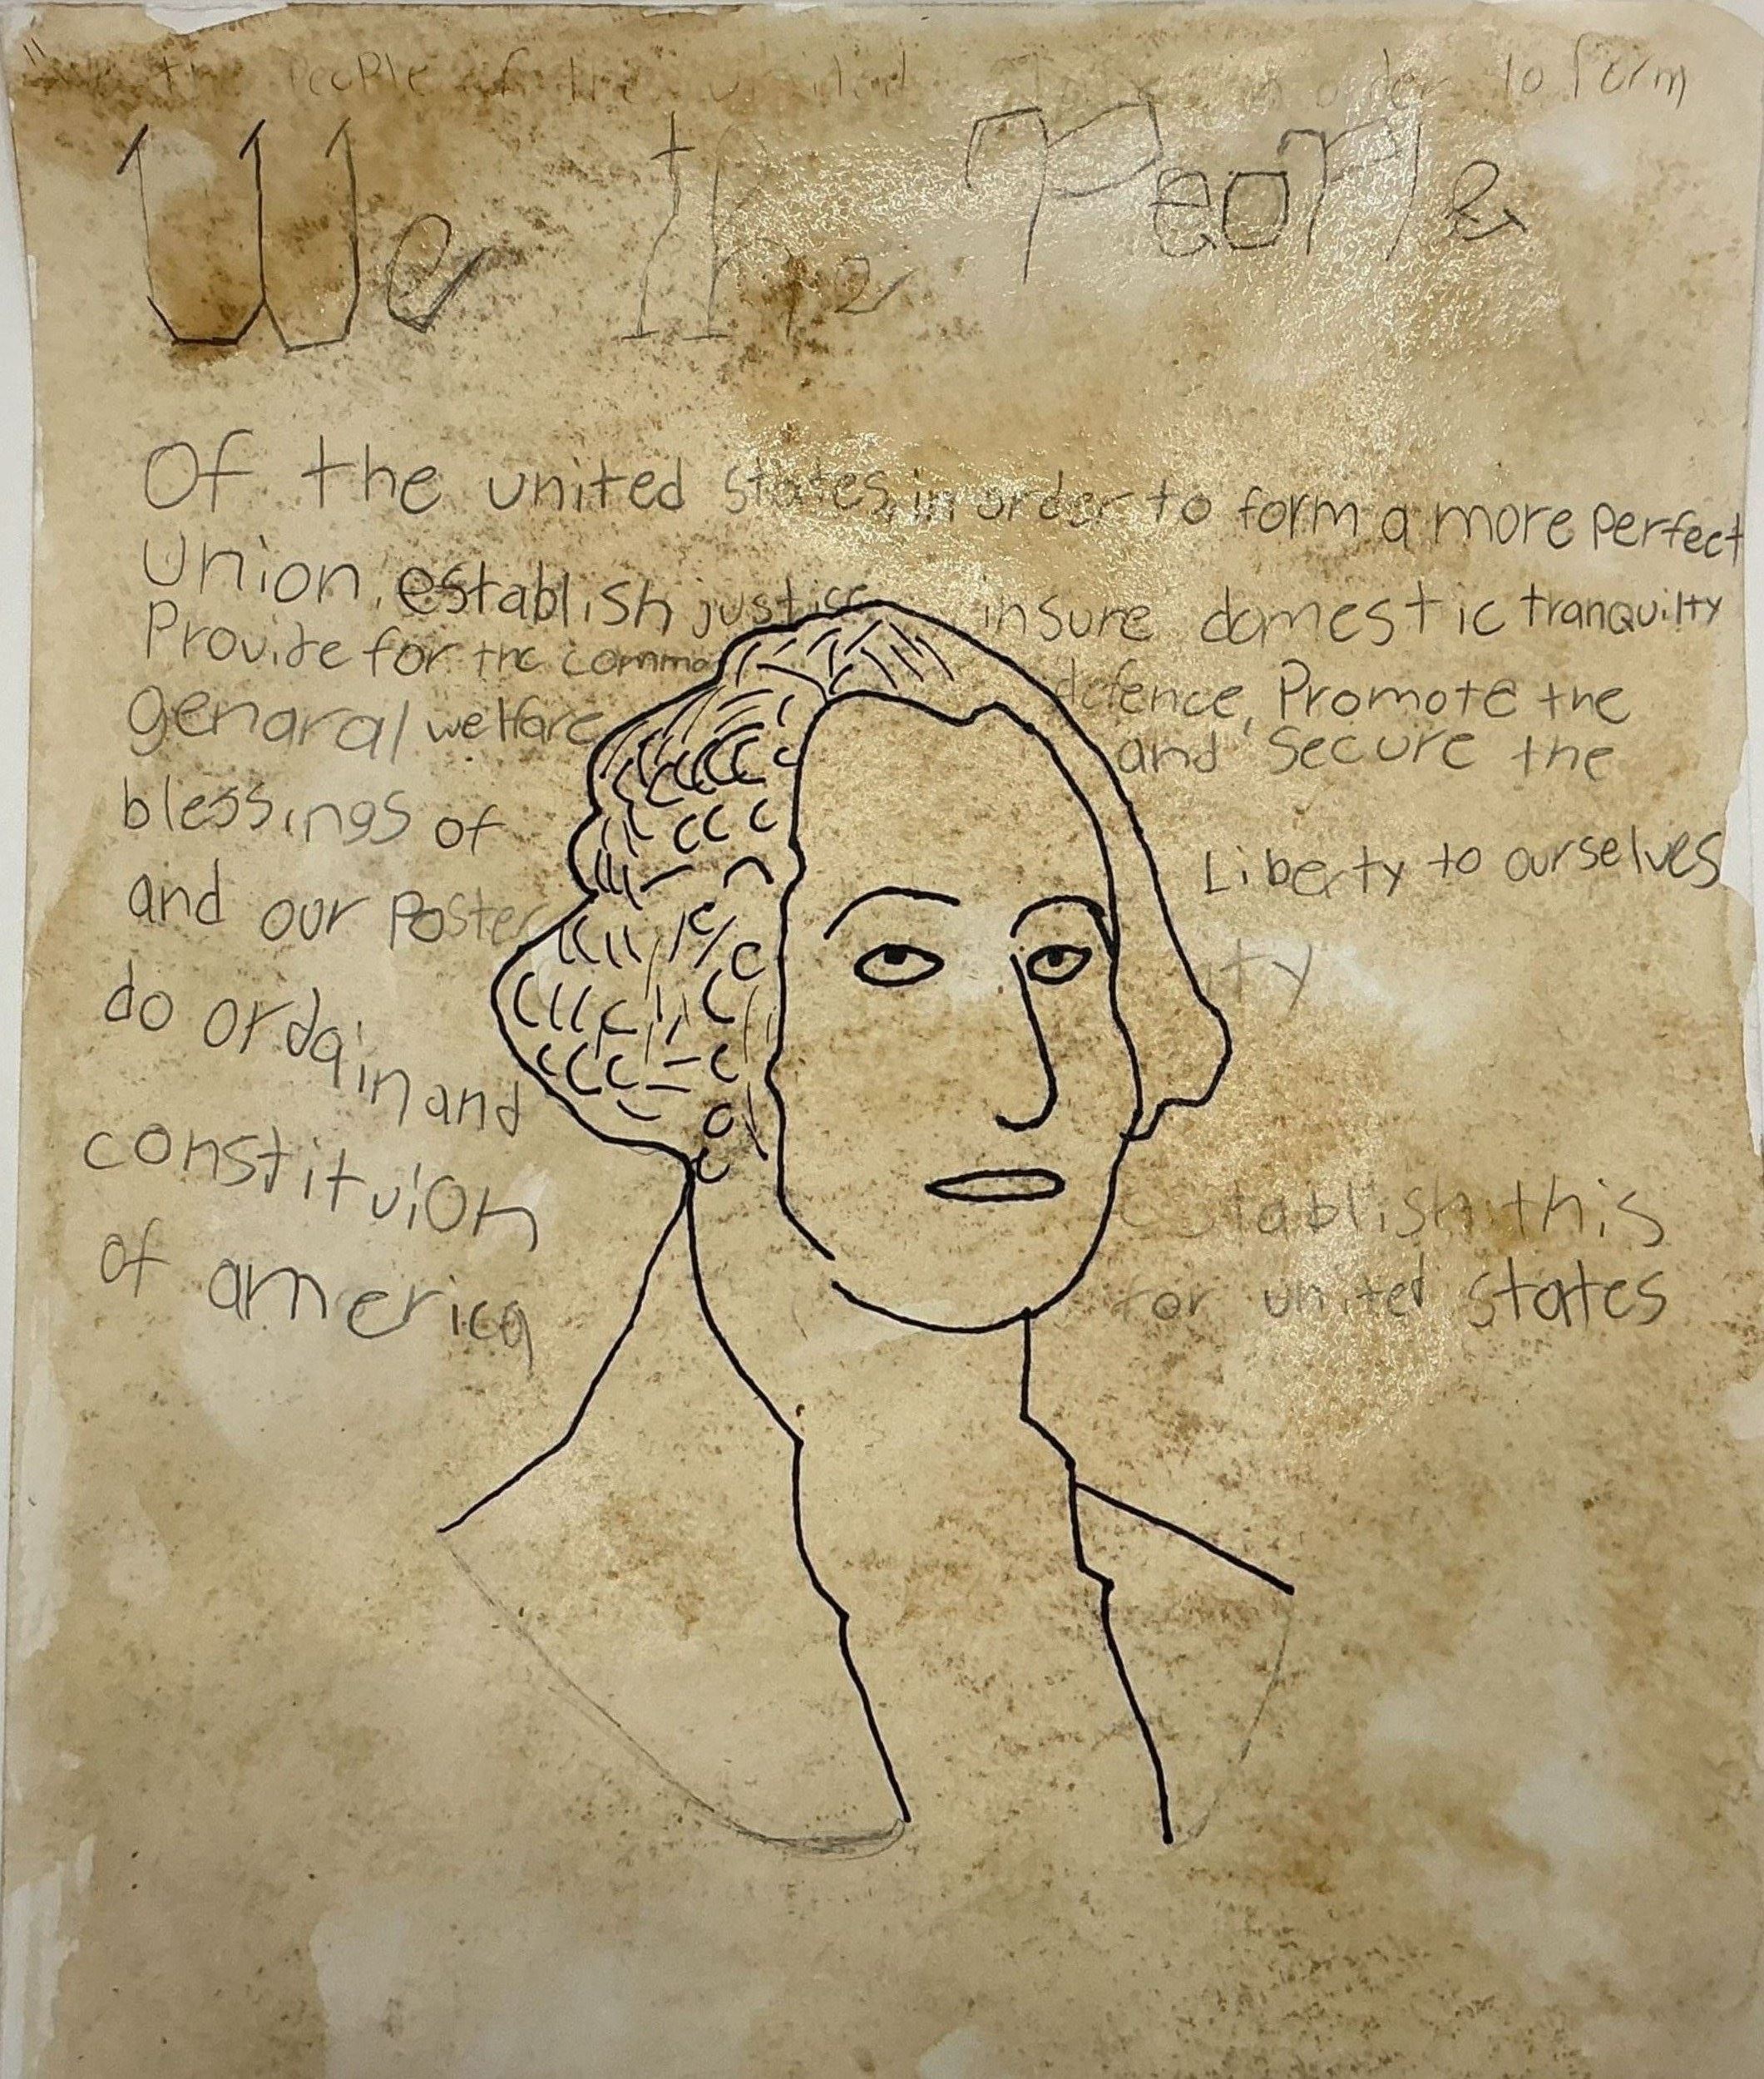 the People of the united order to form
We the People
Of the united states, in order to form a more perfect
Union, establish justice insure domestic tranquilty
Provide for the common defence, Promote the
genaral welfare and secure the
blessings of Liberty to ourselves
and our Posterity
do ordain and establish this
constituion for united states
of america